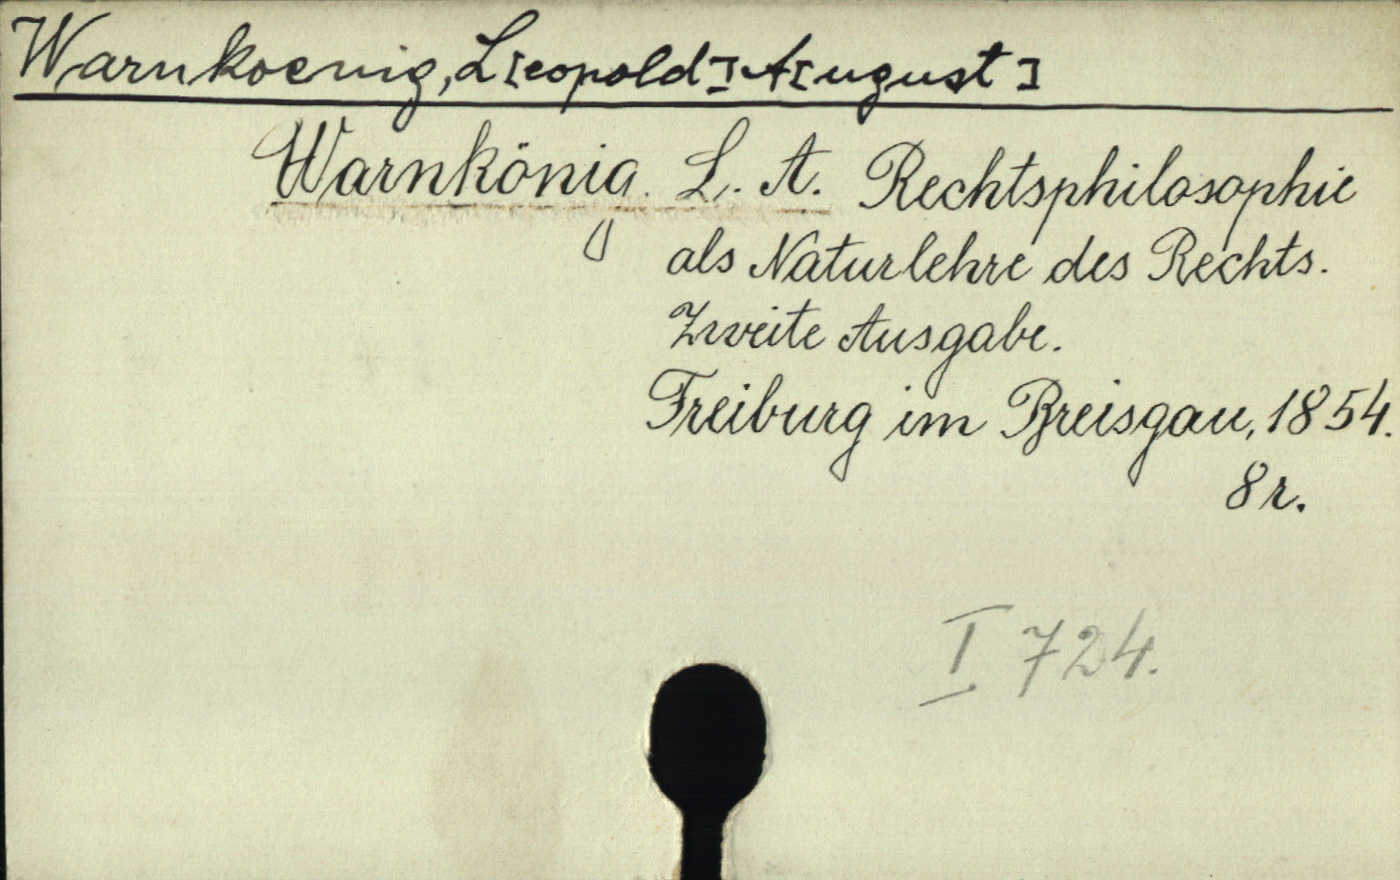 Warnkoenig, L[eopold] A[ugust]
Warnkönig. L. A. Rechtsphilosophie
als Naturlehre des Rechts.
Zweite Ausgabe.
Freiburg im Breisgau, 1854.
8r.
I 724.